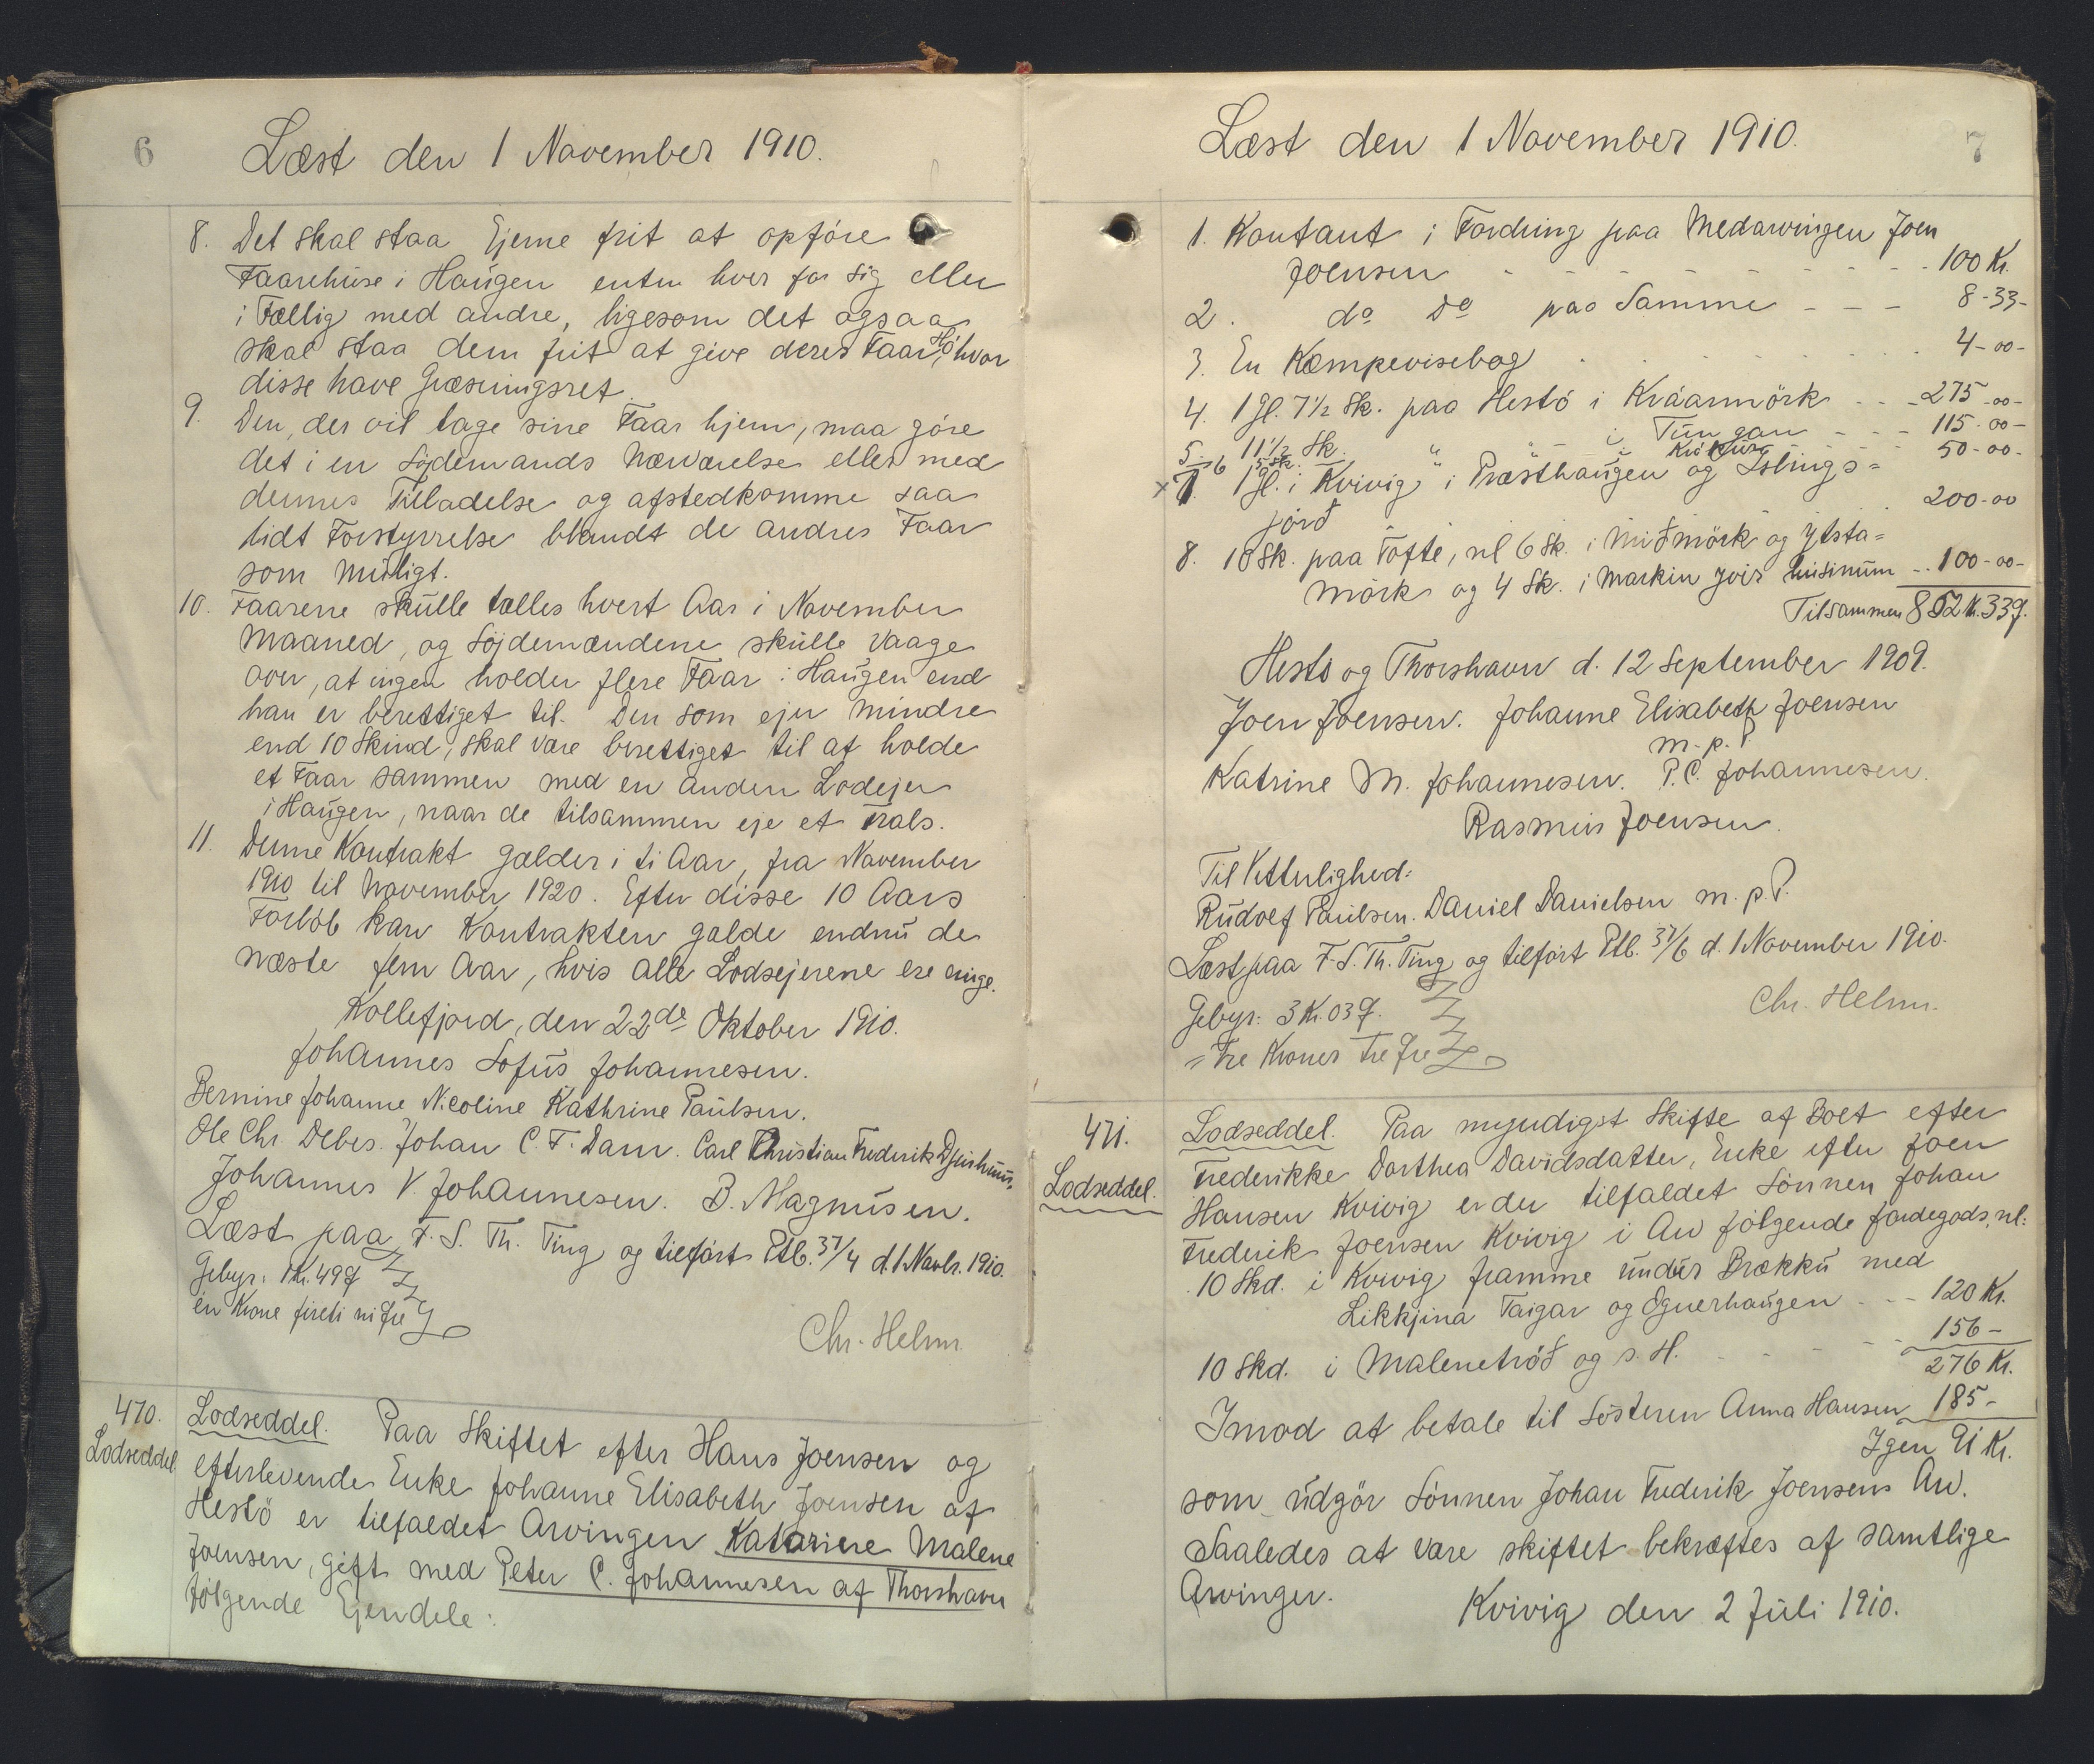 6
Læst den 1 November 1910.
8. Det skal staa Ejerne frit at opføre
Faarehuse i Haugen enten hver for sig eller
i Fællig med andre, ligesom det ogsaa
skal staa dem frit at give deres Faar Hø, hvor
disse have Græsningsret.
9. Den, der vil tage sine Faar hjem, maa gøre
det i en Søjdemands Nærværelse eller med
dennes Tilladelse og afstedkomme saa
lidt Forstyrrelse blandt de andres Faar
som muligt.
10. Faarene skulle tælles hvert Aar i November
Maaned, og Søjdemændene skulle vaage
over, at ingen holder flere Faar i Haugen end
han er berettiget til. Den som ejer mindre
end 10 Skind, skal være berettiget til at holde
et Faar sammen med en anden Lodejer
i Haugen, naar de tilsammen eje et Trals.
11. Denne Kontrakt gælder i ti Aar, fra November
1910 til November 1920. Efter disse 10 Aars
Forløb kan Kontrakten gælde endnu de
næste fem Aar, hvis alle Lodsejerene ere enige.
Kollefjord, den 22de Oktober 1910.
Johannes Sofus Johannesen.
Bernine Johanne Nicoline Kathrine Paulsen.
Ole Chr. Debes. Johan C. F. Dam. Carl Christian Frederik Djurhuus.
Johannes V. Johannesen. B. Magnusen.
Læst paa F. S. Th. Ting og tilført Ptb. 37/4 d. 1 Novbr. 1910.
Gebyr: 1 Kr. 49 Ø
en Krone fireti ni Øre
Chr. Helm.
470.
Lodseddel
Lodseddel. Paa Skiftet efter Hans Joensen og
efterlevende Enke Johanne Elisabeth Joensen af
Hestø er tilfaldet Arvingen Katarine Malene
Joensen, gift med Peter C. Johannesen af Thorshavn
følgende Ejendele:
7
Læst den 1 November 1910.
1. Kontant i Fordring paa Medarvingen Joen
Joensen - - - - - - - - 100 Kr.
2. do do paa Samme - - - 8-33-
3. En Kæmpevisebog . . . . . . 4-00-
4. 1 Gl. 7½ Sk. paa Hestø i Kráarmörk - - - 275-00-
5. 11½ Sk. " " i Túngan - - - 115-00-
6 5 Sk. " " " Krókur 50-00-
x 7. 1 Gl. i Kvivig i Præsthaugen og Islings=
jørð 200-00
8. 10 Sk. paa Tofte, nl 6 Sk. i Miðmörk og Ytsta=
mörk og 4 Sk. i Markin yvir húsinum - - 100-00-
Tilsammen 852 Kr. 33 Ø.
Hestø og Thorshavn d. 12 September 1909.
Joen Joensen. Johanne Elisabeth Joensen
m. p. P
Katrine M. Johannesen. P. C. Johannesen.
Rasmus Joensen.
Til Vitterlighed:
Rudolf Paulsen. Daniel Danielsen m. p. P.
Læst paa F. S. Th. Ting og tilført Ptb. 37/6 d. 1 November 1910.
Gebyr: 3 Kr. 03 Ø.
= Tre Kroner Tre Øre
Chr. Helm.
471.
Lodseddel.
Lodseddel. Paa myndigst Skifte af Boet efter
Frederikke Dorthea Davidsdatter, Enke efter Joen
Hansen Kvivig er der tilfaldet Sønnen Johan
Frederik Joensen Kvivig i Arv følgende Jordegods, nl:
10 Skd. i Kvivig framme undir Brækku med
Likkjina Taigar og Ognerhaugen - - - 120 Kr.
10 Skd. i Malenetrøð og s. H. - - - - - 156-
276 Kr.
Imod at betale til Søsteren Anna Hansen 185-
Igen 91 Kr.
som udgør Sønnen Johan Frederik Joensens Arv.
Saaledes at være skiftet bekræftes af samtlige
Arvinger.
Kvivig den 2 Juli 1910.